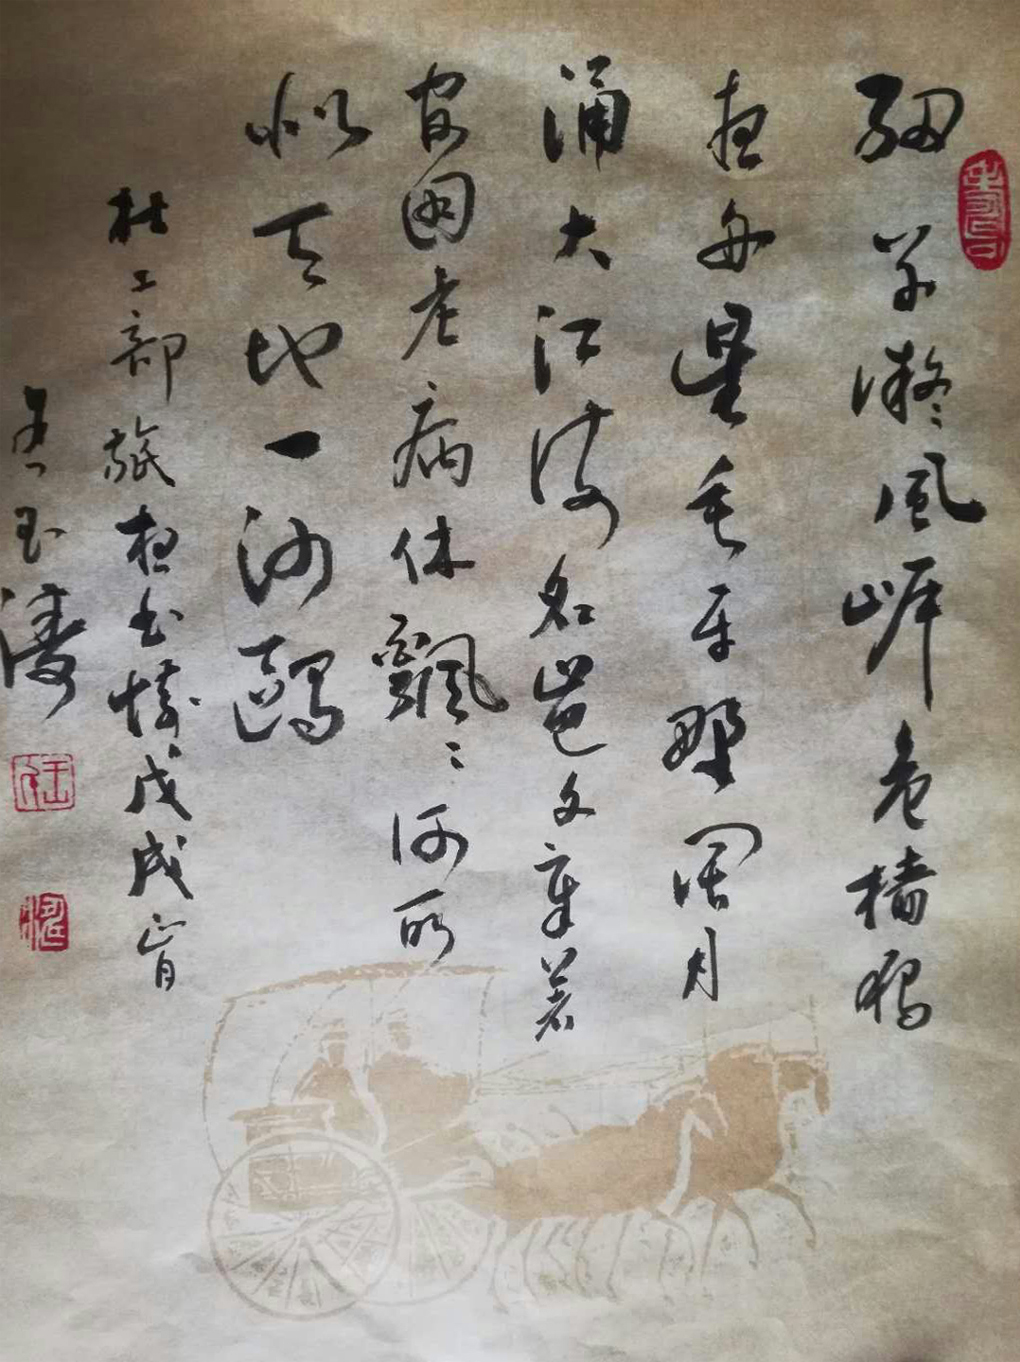 細草微風岸危檣獨
夜舟星垂平野闊月
涌大江流名豈文章著
官因老病休飄〻何所
似天地一沙鷗
杜工部旅夜書懷戊戌
玉濤